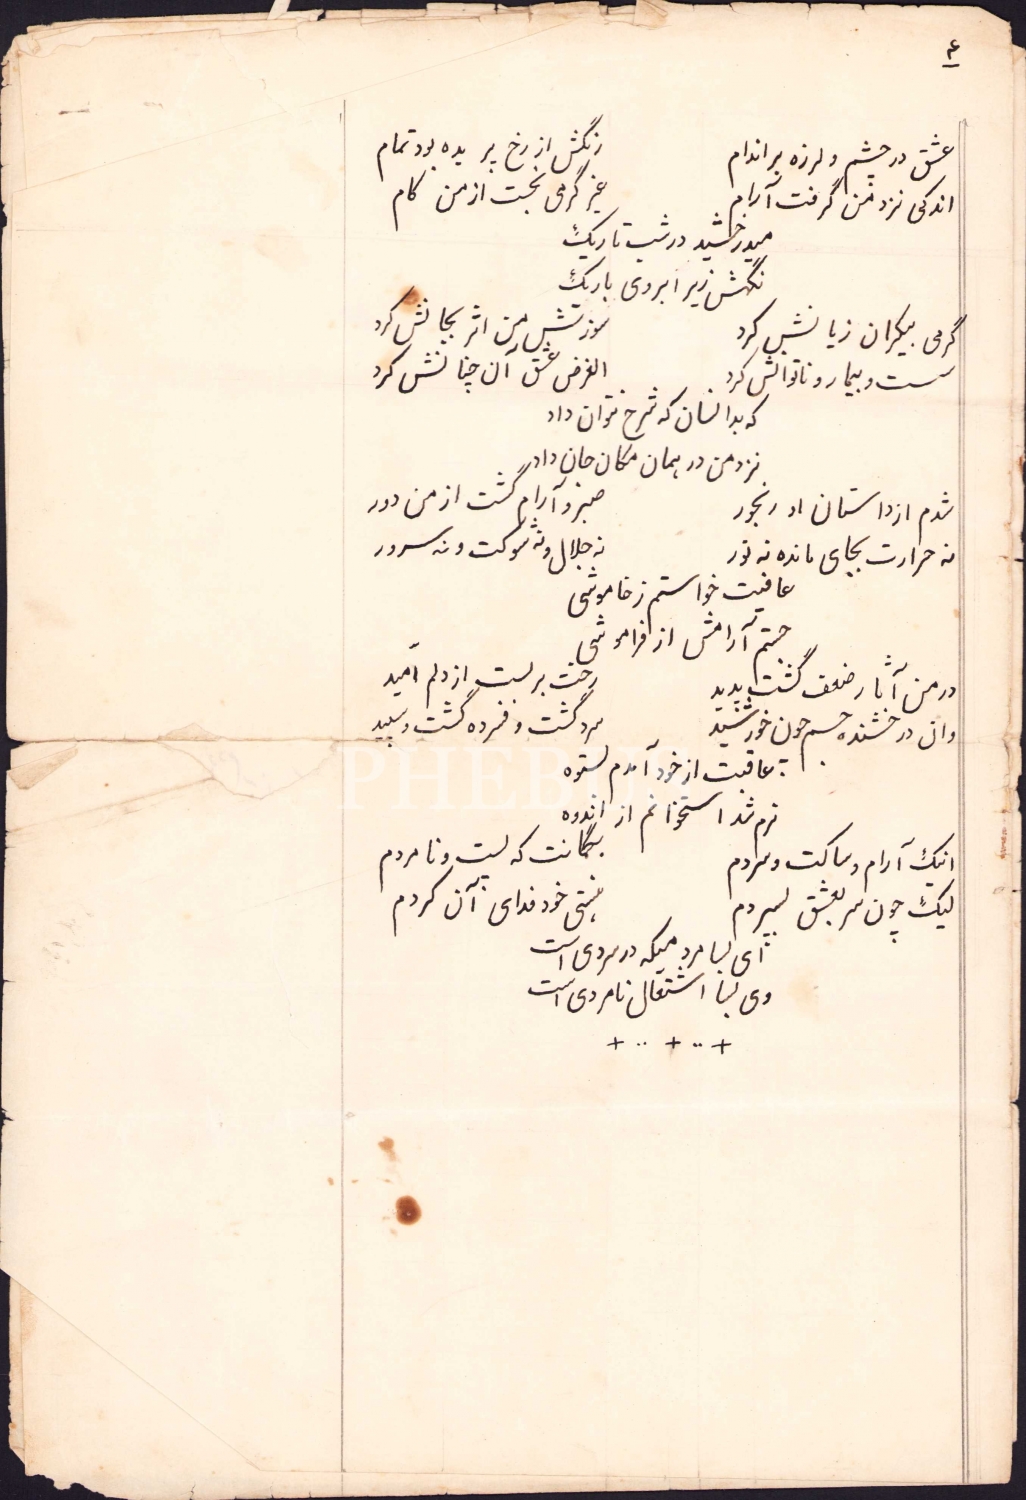 ۴
عشق در چشم و لرزه بر اندام رنگش از رخ پریده بود تمام
اندکی نزد من گرفت آرام غیر گرمی بجست از من کام
میدرخشید در شب تاریک
نگهش زیر ابروی باریک
گرمی بیکران زیانش کرد سوزش من اثر بجانش کرد
سست و بیمار و ناتوانش کرد الغرض عشق آن چنانش کرد
که بدانسان که شرح نتوان داد
نزد من در همان مکان جان داد
شدم از داستان او رنجور صبر و آرام گشت از من دور
نه حرارت بجای مانده نه نور نه جلال و نه شوکت و نه سرور
عافیت خواستم ز خاموشی
جستم آرامش از فراموشی
در من آثار ضعف گشت پدید رخت بر بست از دلم امید
وان درخشنده جسم چون خورشید سرد گشت و فسرده گشت و سپید
عاقبت از خود آمدم بستوه
نرم شد استخوانم از اندوه
اینک آرام و ساکت و سردم بگمانت که پست و نامردم
لیک چون سر بعشق بسپردم هستی خود فدای آن کردم
ای بسا مردمیکه در سردی است
وی بسا اشتعال نامردی است
+ .. + .. +
PHEBUS